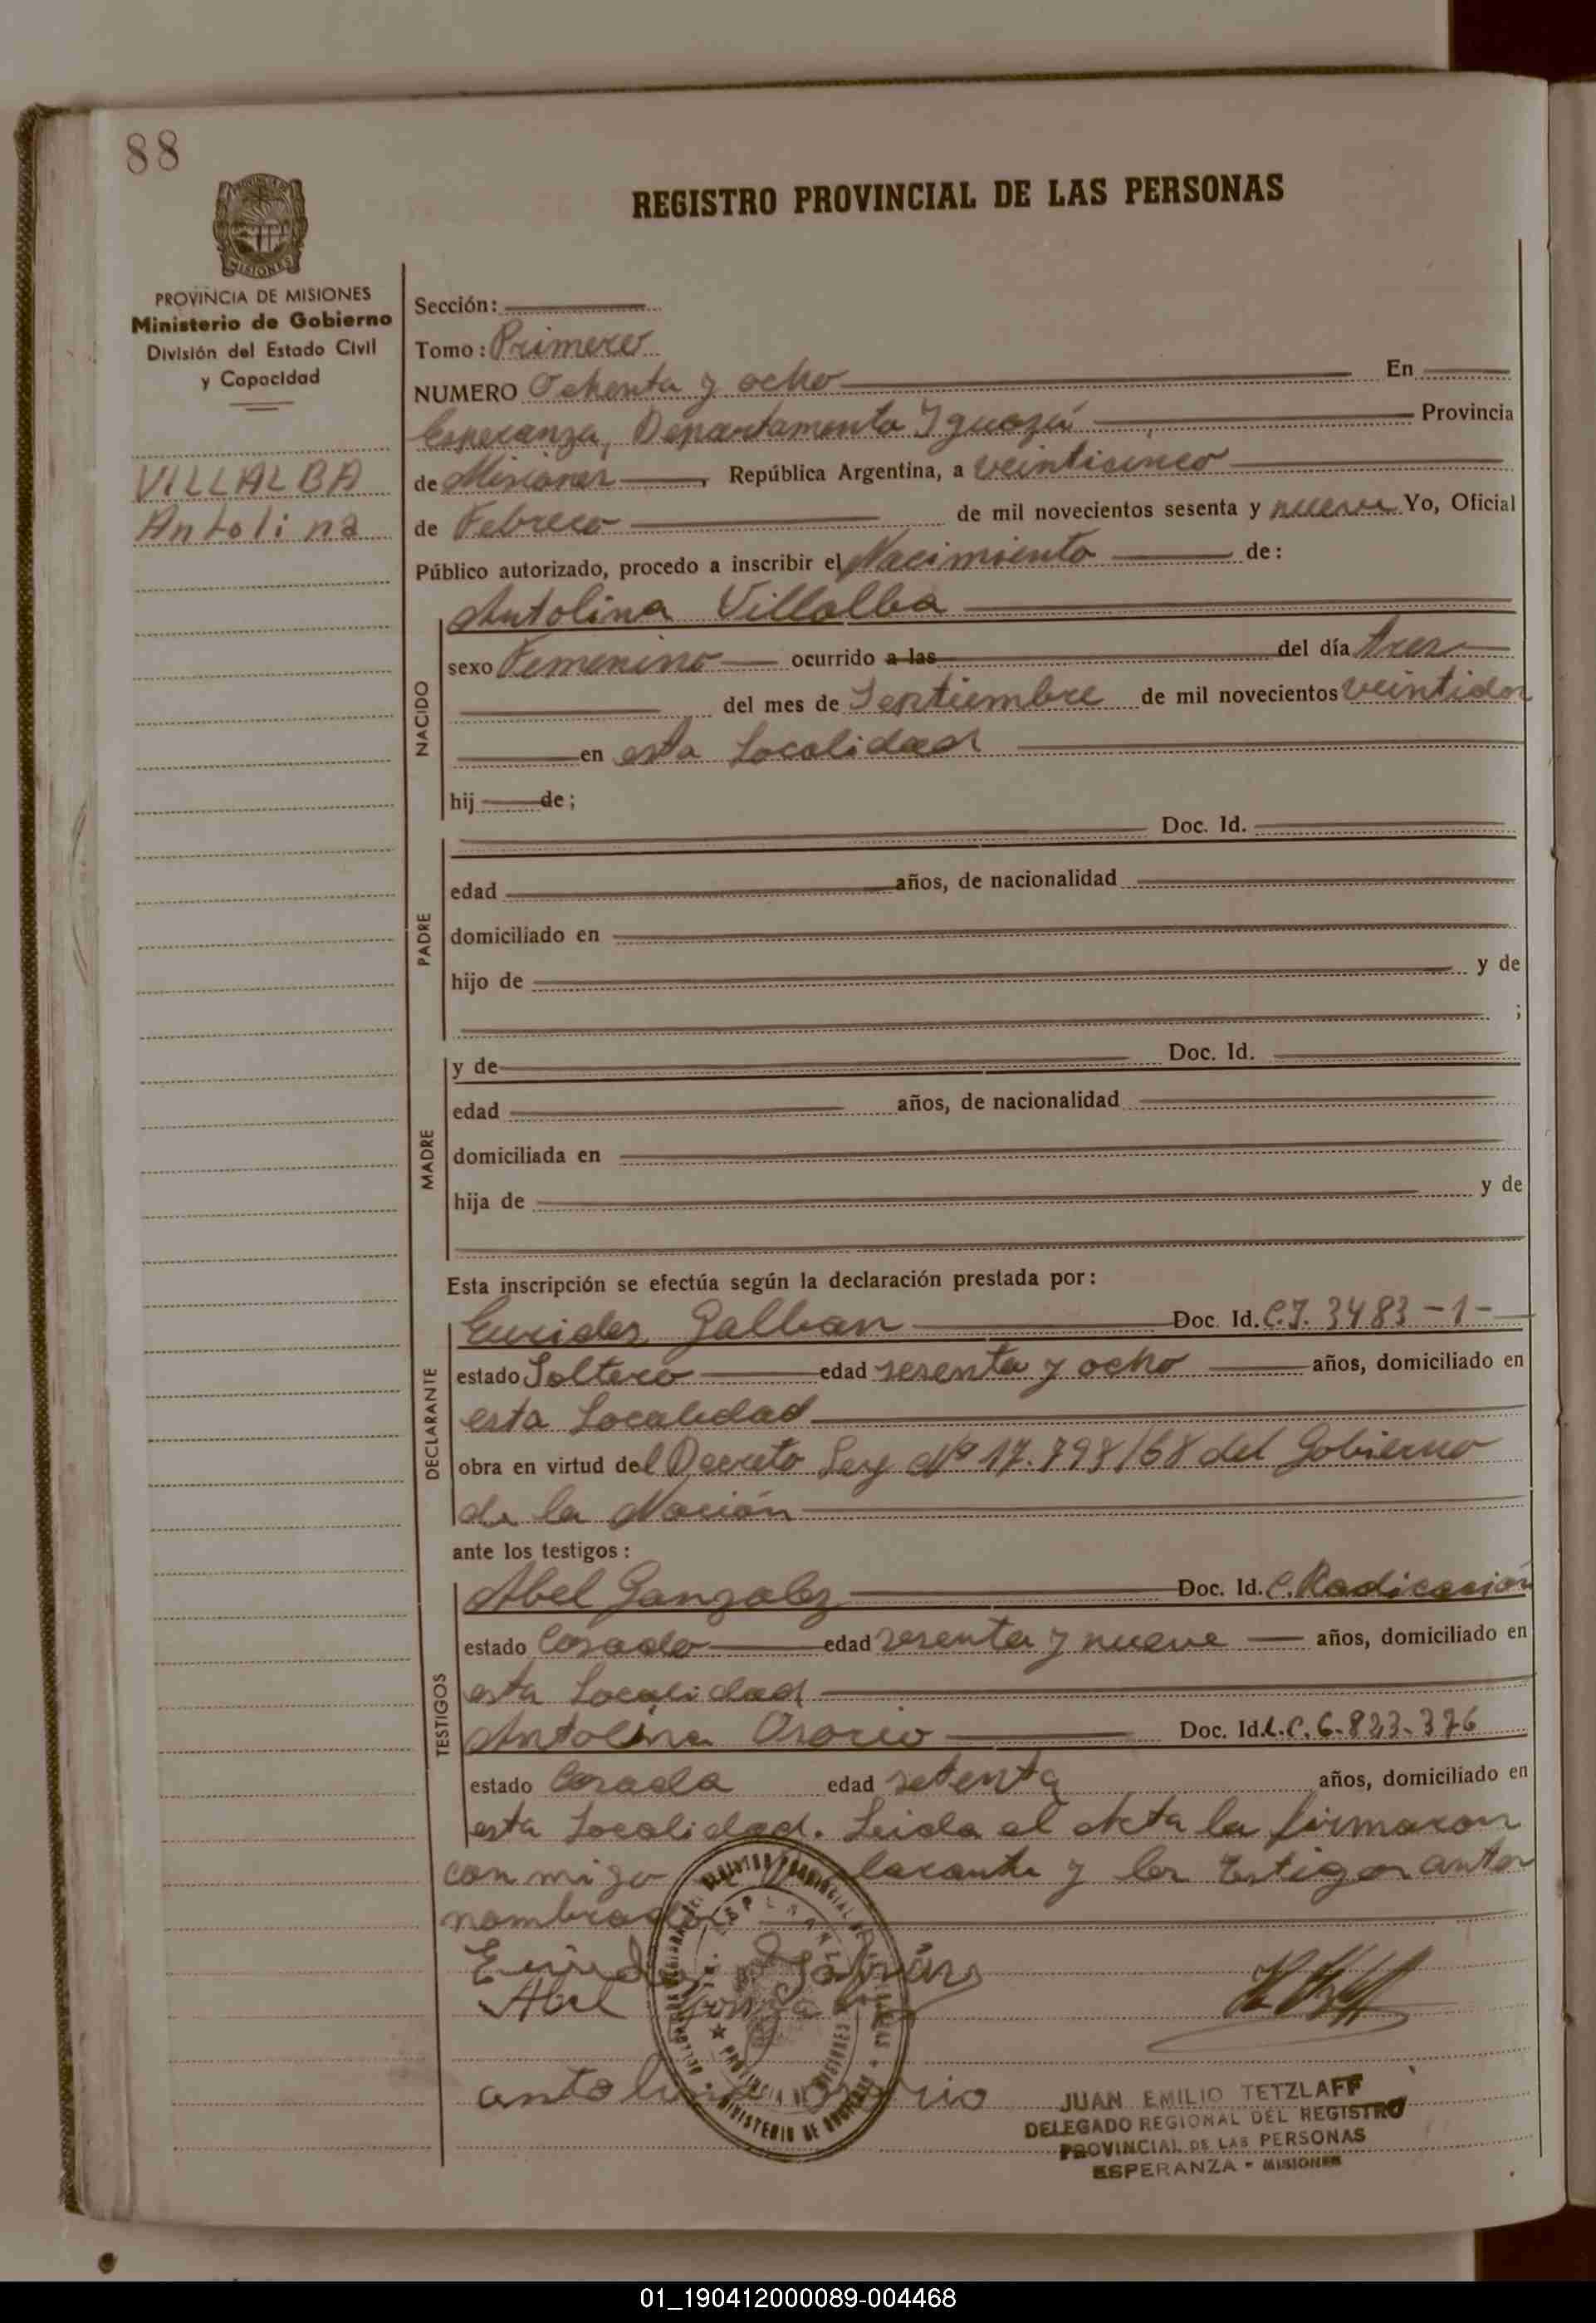 88
REGISTRO PROVINCIAL DE LAS PERSONAS
MISIONES
PROVINCIA DE MISIONES
Ministerio de Gobierno
División del Estado Civil
y Capacidad
VILLALBA
Antolina
Sección:
Tomo: Primero
NUMERO Ochenta y ocho En
Esperanza, Departamento Iguazú Provincia
de Misiones, República Argentina, a veintisinco
de Febrero de mil novecientos sesenta y nueve Yo, Oficial
Público autorizado, procedo a inscribir el Nacimiento de:
NACIDO
Antolina Villalba
sexo Femenino ocurrido a las del día tres
del mes de Septiembre de mil novecientos veintidos
en esta Localidad
hij de;
PADRE
Doc. Id.
edad años, de nacionalidad
domiciliado en
hijo de y de
;
MADRE
y de Doc. Id.
edad años, de nacionalidad
domiciliada en
hija de y de
Esta inscripción se efectúa según la declaración prestada por:
DECLARANTE
Eurides Galban Doc. Id. C.I. 3483-1-
estado Soltero edad sesenta y ocho años, domiciliado en
esta Localidad
obra en virtud del Decreto Ley Nº 17.798/68 del Gobierno
de la Nación
ante los testigos:
TESTIGOS
Abel Gonzalez Doc. Id. C. Radicación
estado Casado edad sesenta y nueve años, domiciliado en
esta Localidad
Antolina Osorio Doc. Id. L.C. 6.823.376
estado Casada edad setenta años, domiciliado en
esta Localidad. Leida el Acta la firmaron
conmigo larante y los testigos antes
nombrados
Abel
antolina osorio
JUAN EMILIO TETZLAFF
DELEGADO REGIONAL DEL REGISTRO
PROVINCIAL DE LAS PERSONAS
ESPERANZA - MISIONES
01_190412000089-004468